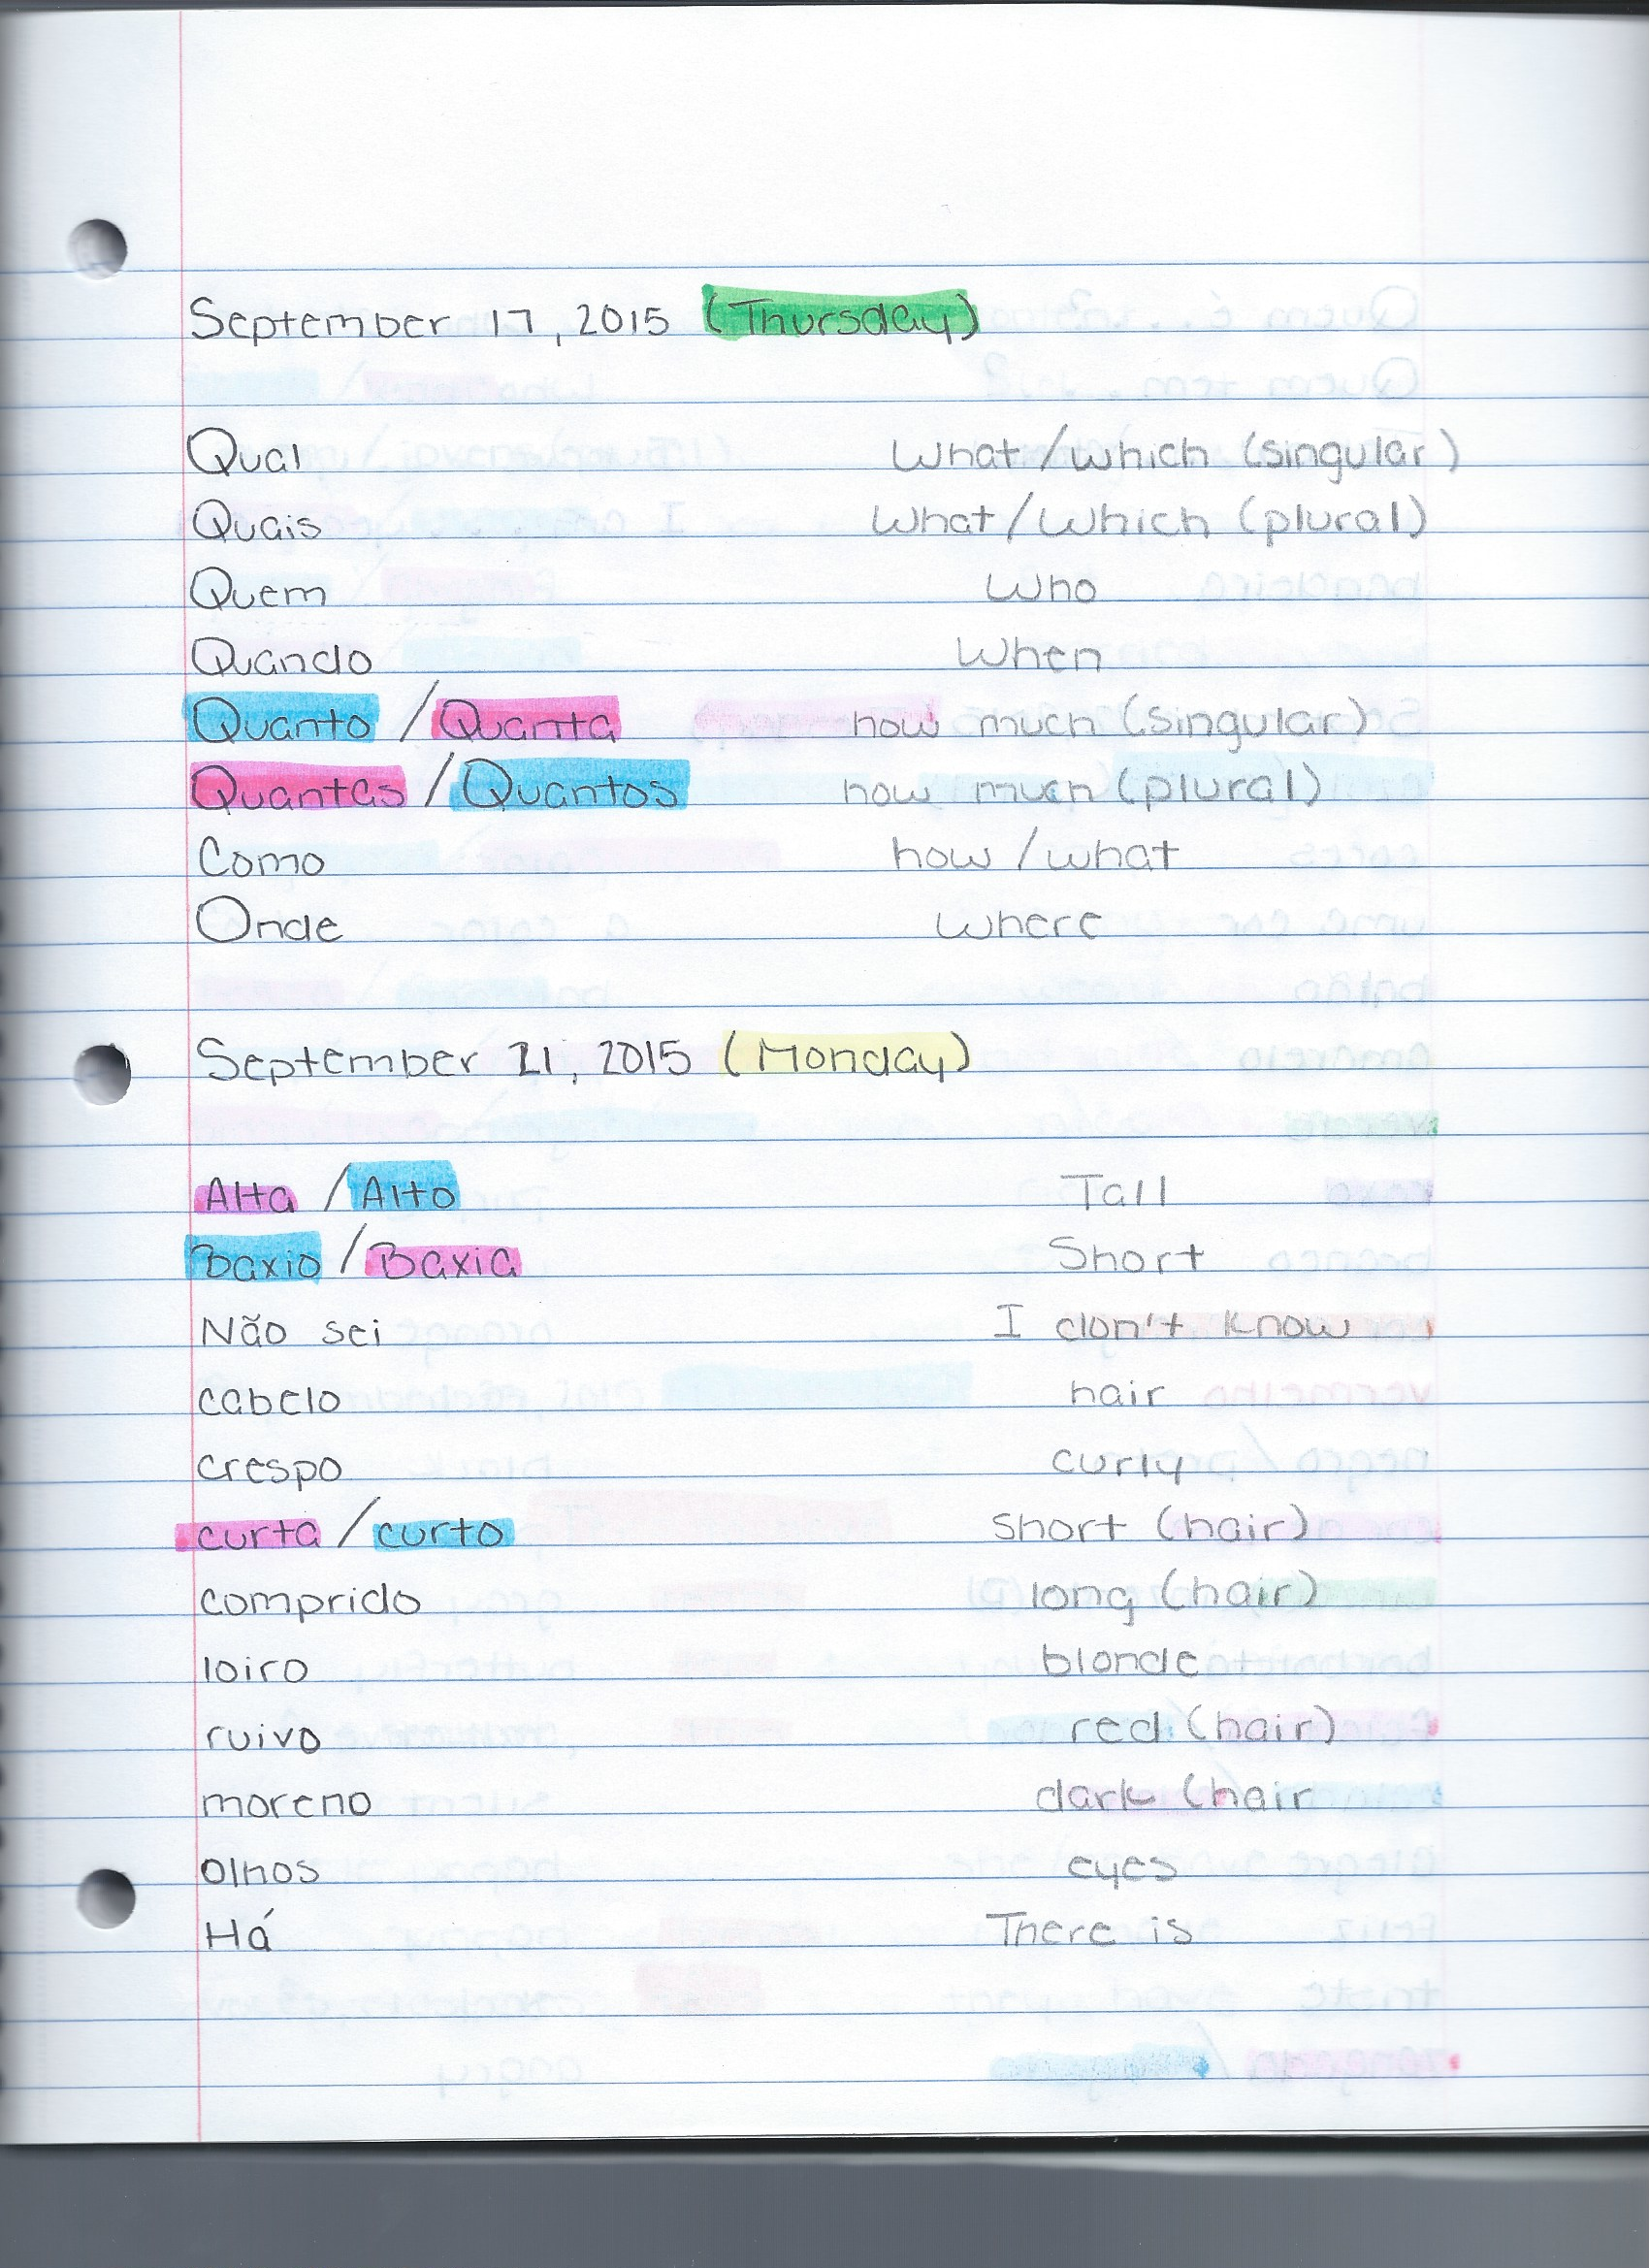 September 17, 2015 (Thursday)
Qual What/which (singular)
Quais What/Which (plural)
Quem Who
Quando When
Quanto / Quanta how much (singular)
Quantas / Quantos how much (plural)
Como how / what
Onde where
September 21, 2015 (Monday)
Alta / Alto Tall
Baxio / Baxia Short
Não sei I don't know
cabelo hair
crespo curly
curta / curto short (hair)
comprido long (hair)
loiro blonde
ruivo red (hair)
moreno dark (hair
olhos eyes
Há There is